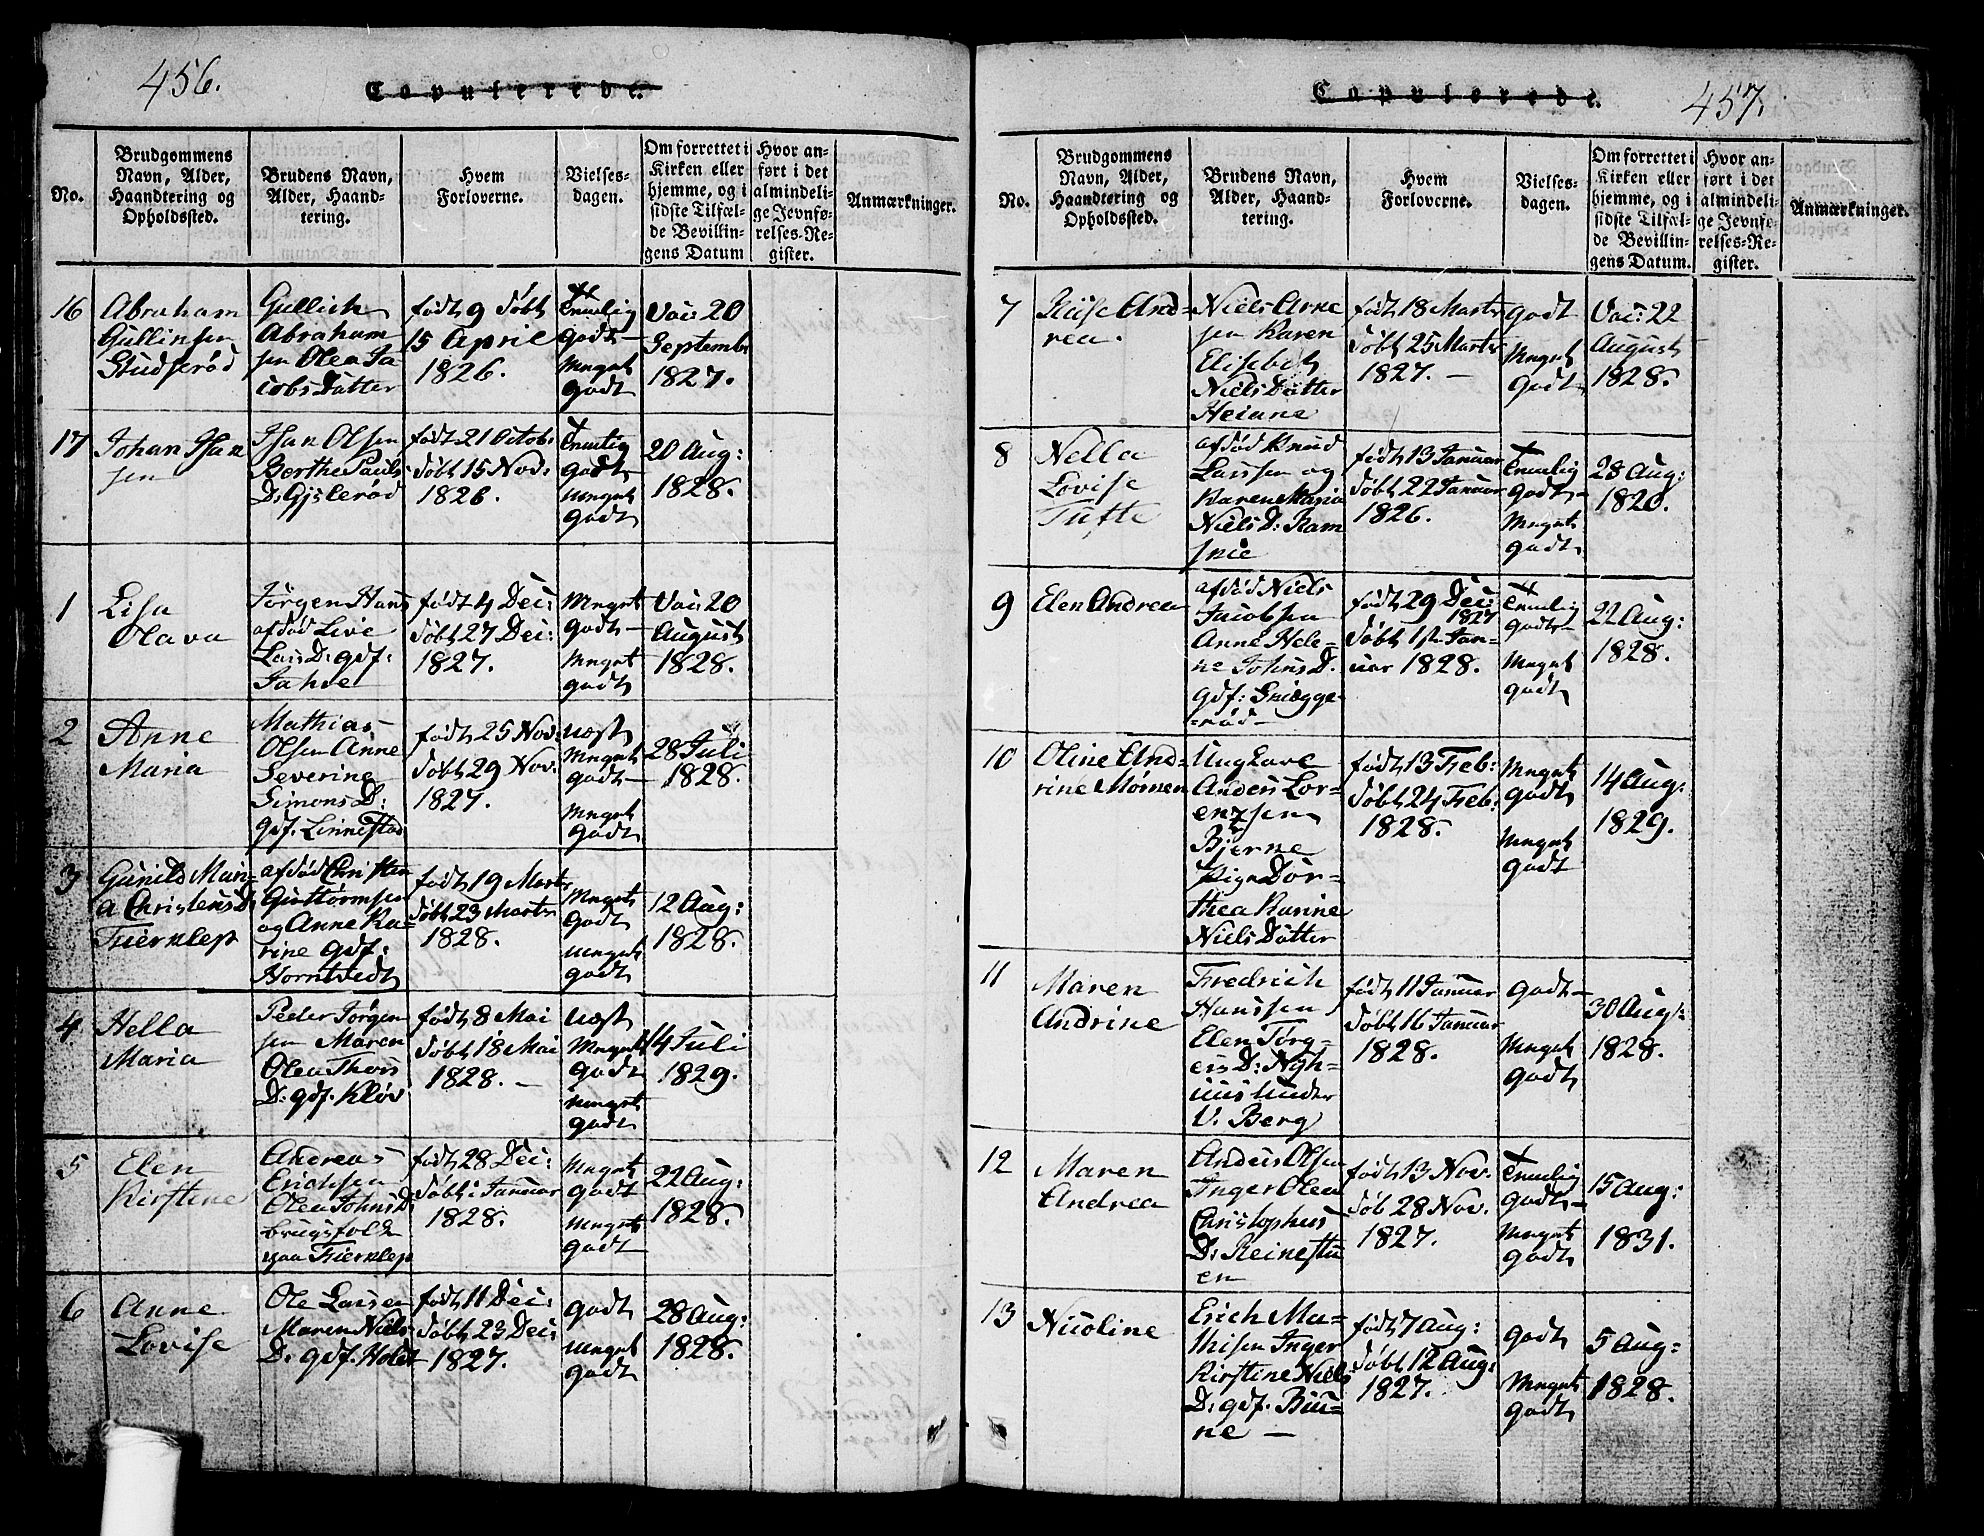 456.
Copulerede.
No.
Brudgommens
Navn, Alder,
Haandtering og
Opholdssted.
Brudens Navn,
Alder, Haand-
tering.
Hvem
Forloverne.
Vielses-
dagen.
Om forrettet i
Kirken eller
hjemme, og i
sidste Tilfæl-
de Bevillin-
gens Datum
Hvor an-
ført i det
almindeli-
ge Jevnfø-
relses-Re-
gister.
Anmærkninger.
16
Abraham
Gullinsen
Studserød
Gullich
Abraham
sen Olea Ja-
cobs Datter
født 9 døbt
15 April
1826.
Temlig
godt
Meget
godt
Vac: 20
Septembr
1827.
17
Johan Isan
sen
Isan Olsen
Berthe Pauls
D: Gjslerød
født 21 Octob:
døbt 15 Nov:
1826.
Temlig
godt
Meget
godt
20 Aug:
1828.
1
Lisa
Olava
Jørgen Hans
afdød Live
Lars D: gdf:
Jahre
født 4 Dec:
døbt 27 Dec:
1827.
Meget
godt
Meget
godt
Vac: 20
August
1828.
2
Anne
Maria
Mathias
Olsen Anne
Severine
Simons D:
gdf. Linnestad
født 25 Nov:
døbt 29 Nov.
1827.
næst
Meget
godt
Meget
godt
28 Juli
1828.
3
Gunild Mari-
a Christens D.
Fierklep
afdød Christen
Guttormsen
og Anne Ka-
rine gdf:
Horntvedt
født 19 Marts
døbt 23 Marts
1828.
Meget
godt
Meget
godt
12 Aug:
1828.
4
Hella
Maria
Peder Jørgen
sen Maren
Olea Thors
D: gdf. Kløv
født 8 Mai
døbt 18 Mai
1828. –
næst
Meget
godt
Meget
godt
14 Juli
1829.
5
Elen
Kirstine
Andreas
Erichsen
Olea Johns D.
brugsfolk
paa Fierklep
født 28 Dec:
døbt: Januar
1828.
Meget
godt
Meget
godt
22 Aug:
1828.
6
Anne
Lovise
Ole Larsen
Maren Niels
D: gdf. Holet
født 11 Dec:
døbt 23 Dec:
1827.
godt
Meget
godt
28 Aug:
1828.
Copulerede.
457.
No.
Brudgommens
Navn, Alder,
Haandtering og
Opholdssted.
Brudens Navn,
Alder, Haand-
tering.
Hvem
Forloverne.
Vielses-
dagen.
Om forrettet i
Kirken eller
hjemme, og i
sidste Tilfæl-
de Bevillin-
gens Datum.
Hvor an-
ført i det
almindeli-
ge Jevnfø-
relses-Re-
gister.
Anmærkninger.
7
And-
rea.
Niels Arne
sen Karen
Elisebet
Niels Datter
Heiane
født 18 Marts
døbt 25 Marts
1827. –
godt
Meget
godt
Vac: 22
August
1828.
8
Nella
Lovise
Tufte
afdød Knud
Larsen og
Karen Maria
Niels D: Ram
snie
født 13 Januar
døbt 22 Januar
1826.
Temlig
godt
Meget
godt
28 Aug:
1828.
9
Elen Andrea
afdød Niels
Jacobsen
Anne Hele-
ne Johns D.
gdf: Snægge-
rød
født 29 Dec:
1827
døbt 1ste Jan-
uar 1828.
Temlig
godt
Meget
godt
22 Aug:
1828.
10
Oline And-
rine Mørnen
Ungkare
Anders Lor-
entzsen
Bjerne
Pige Dor-
thea Karine
Niels Datter
født 13 Feb:
døbt 24 Feb:
1828.
Meget
godt
Meget
godt
14 Aug:
1829.
11
Maren
Andrine
Fredrich
Hanssen
Elen Jørg-
ens D: Nyh-
uus under
V. Berg
født 11 Januar
døbt 16 Januar
1828.
godt
Meget
godt
30 Aug:
1828.
12
Maren
Andrea
Anders Olsen
Inger Olea
Christophers
D: Reinestu
en
født 13 Nov.
døb 28 Nov.
1827.
Temlig
godt
Meget
godt
15 Aug:
1831.
13
Nicoline
Erich Ma-
thisen Inger
Kirstine Niels
D: gdf. Biu-
ne –
født 7 Aug:
døbt 12 Aug:
1827.
godt
Meget
godt
5 Aug:
1828.